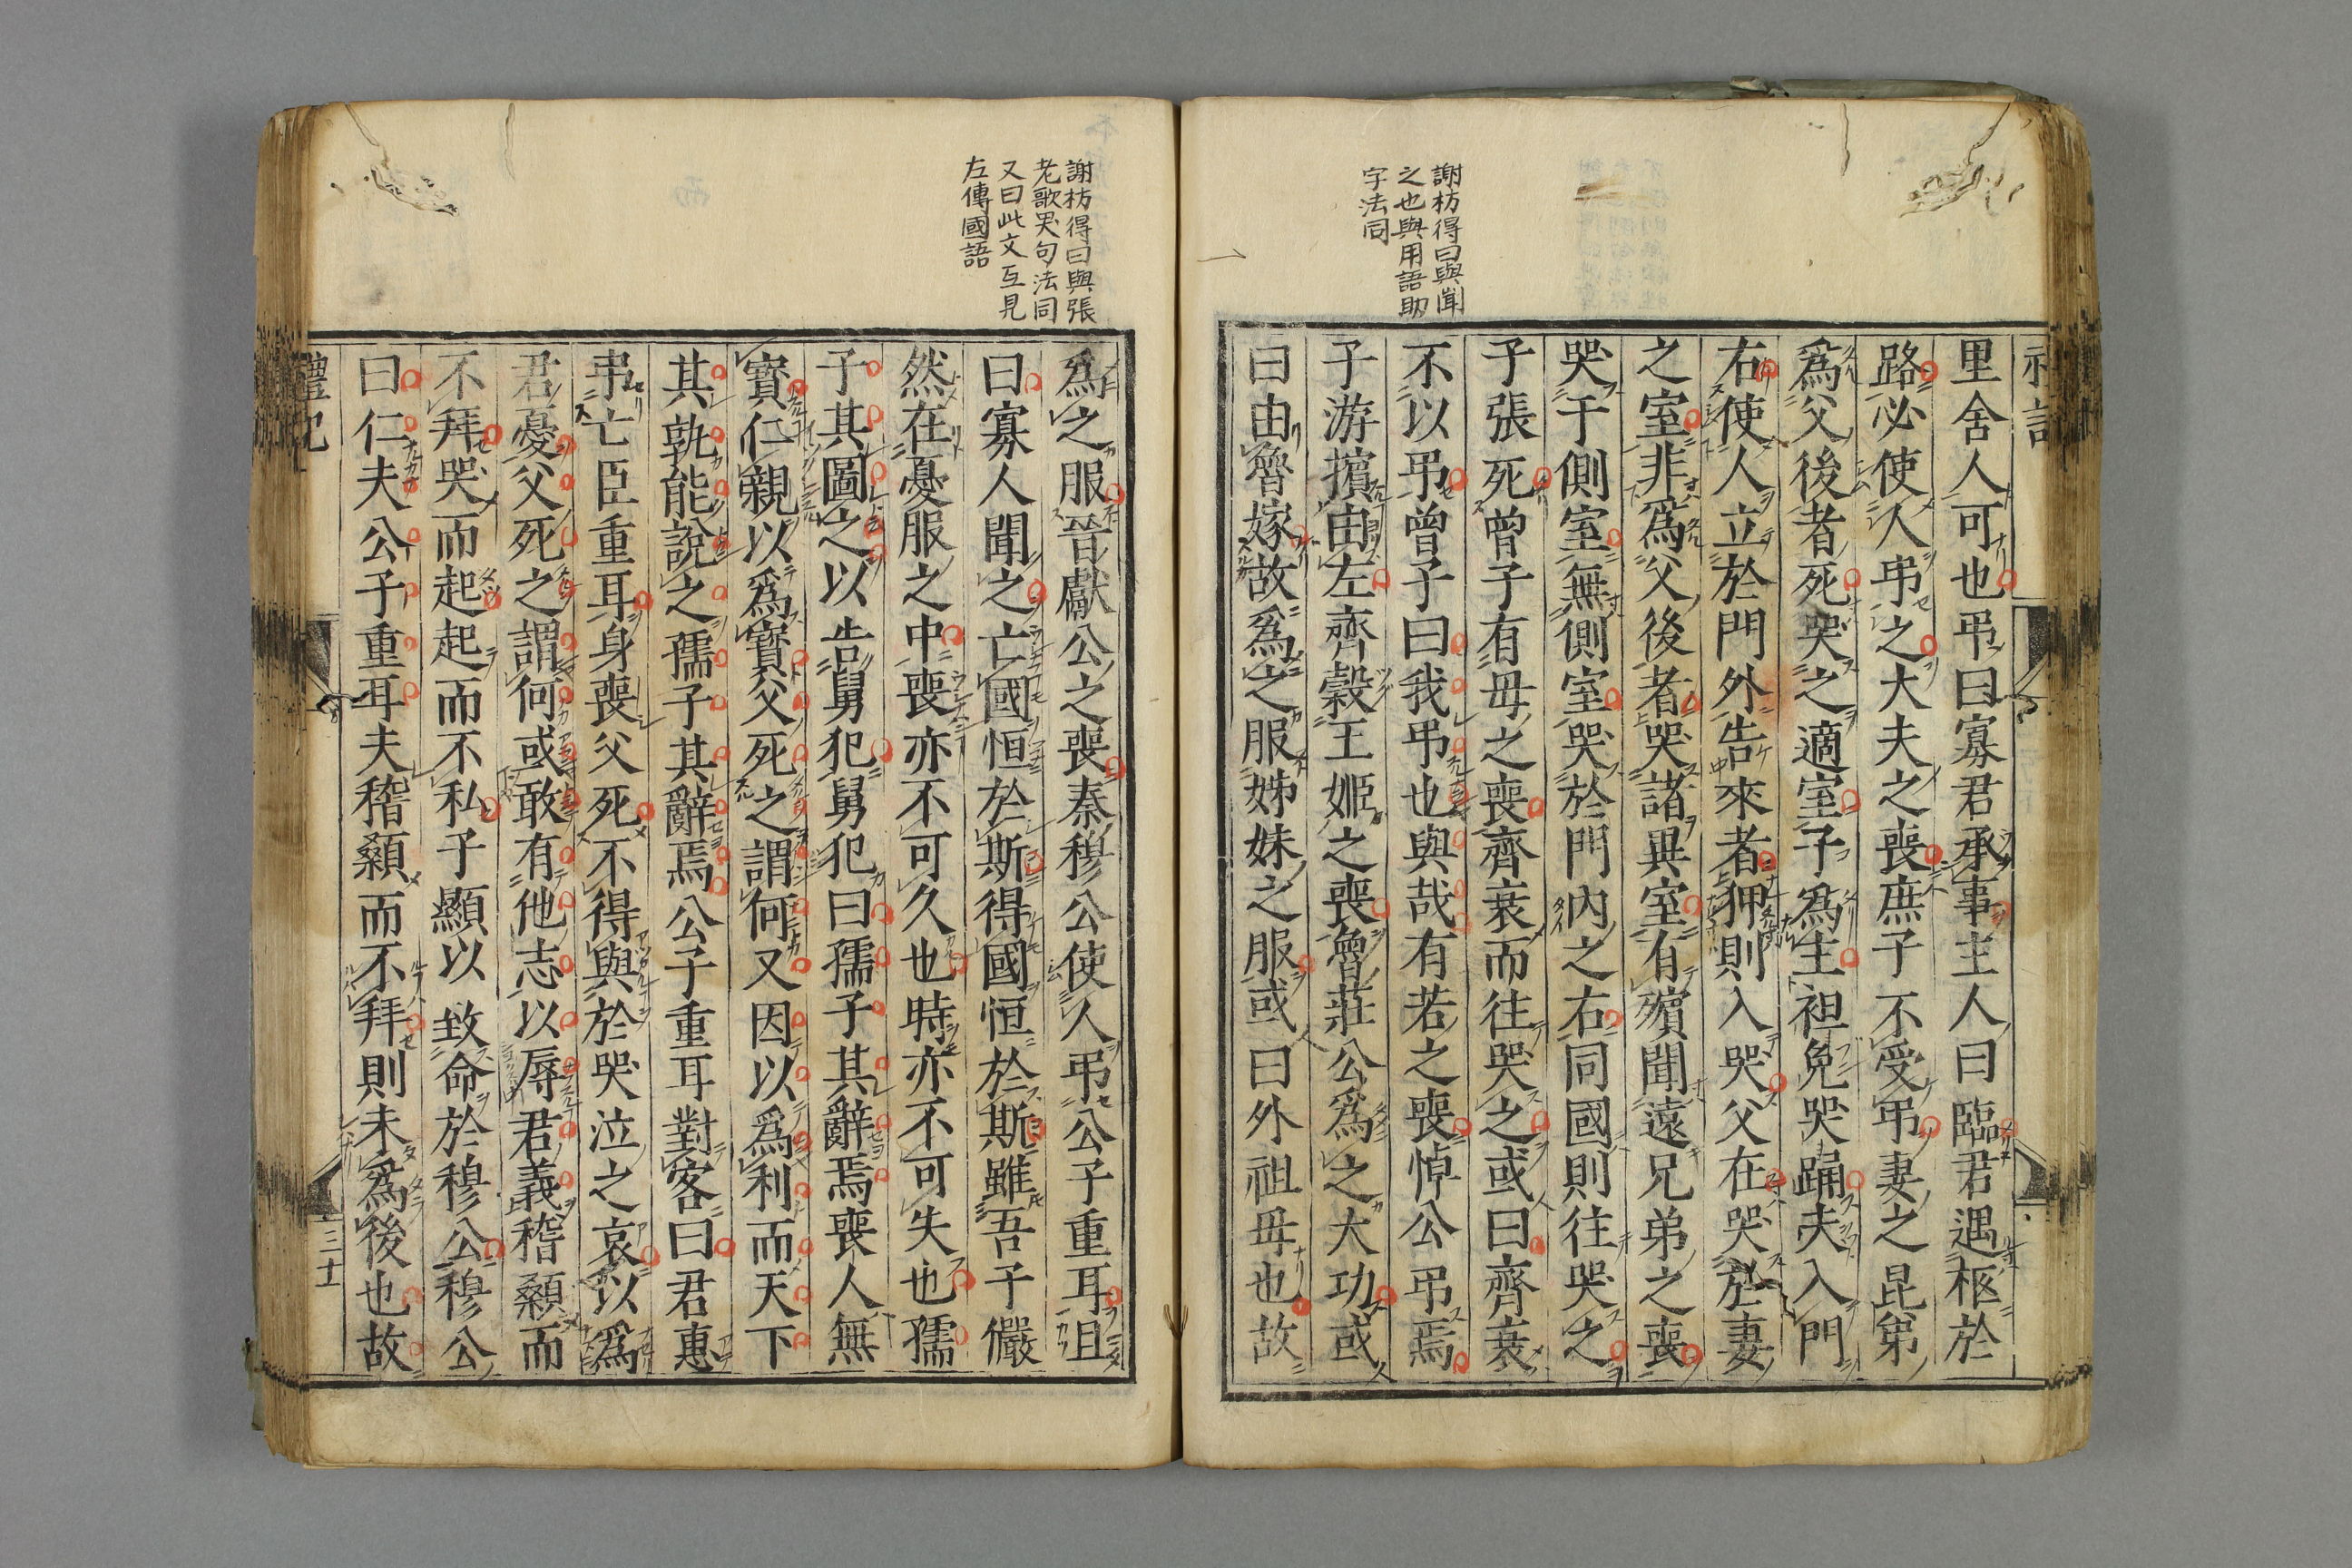 謝枋得曰與聞
之也與用語助
字法同
里舍人可也弔曰寡君承事主人曰臨君遇柩於
路必使人弔之大夫之喪庶子不受弔妻之昆弟
爲父後者死哭之適室子爲主袒免哭踊夫入門
右使人立於門外告來者狎則入哭父在哭於妻
之室非爲父後者哭諸異室有殯聞遠兄弟之喪
哭于側室無側室哭於門內之右同國則往哭之
子張死曾子有母之喪齊衰而往哭之或曰齊衰
不以弔曾子曰我弔也與哉有若之喪悼公弔焉
子游擯由左齊穀王姬之喪魯莊公爲之大功或
曰由魯嫁故爲之服姊妹之服或曰外祖母也故
謝枋得曰與張
老歌哭句法同
又曰此文互見
左傳國語
爲之服晉獻公之喪秦穆公使人弔公子重耳且
曰寡人聞之亡國恒於斯得國恒於斯雖吾子儼
然在憂服之中喪亦不可久也時亦不可失也孺
子其圖之以告舅犯舅犯曰孺子其辭焉喪人無
寶仁親以爲寶父死之謂何又因以爲利而天下
其孰能說之孺子其辭焉公子重耳對客曰君惠
弔亡臣重耳身喪父死不得與於哭泣之哀以爲
君憂父死之謂何或敢有他志以辱君義稽顙而
不拜哭而起起而不私子顯以致命於穆公穆公
曰仁夫公子重耳夫稽顙而不拜則未爲後也故
禮記
三十